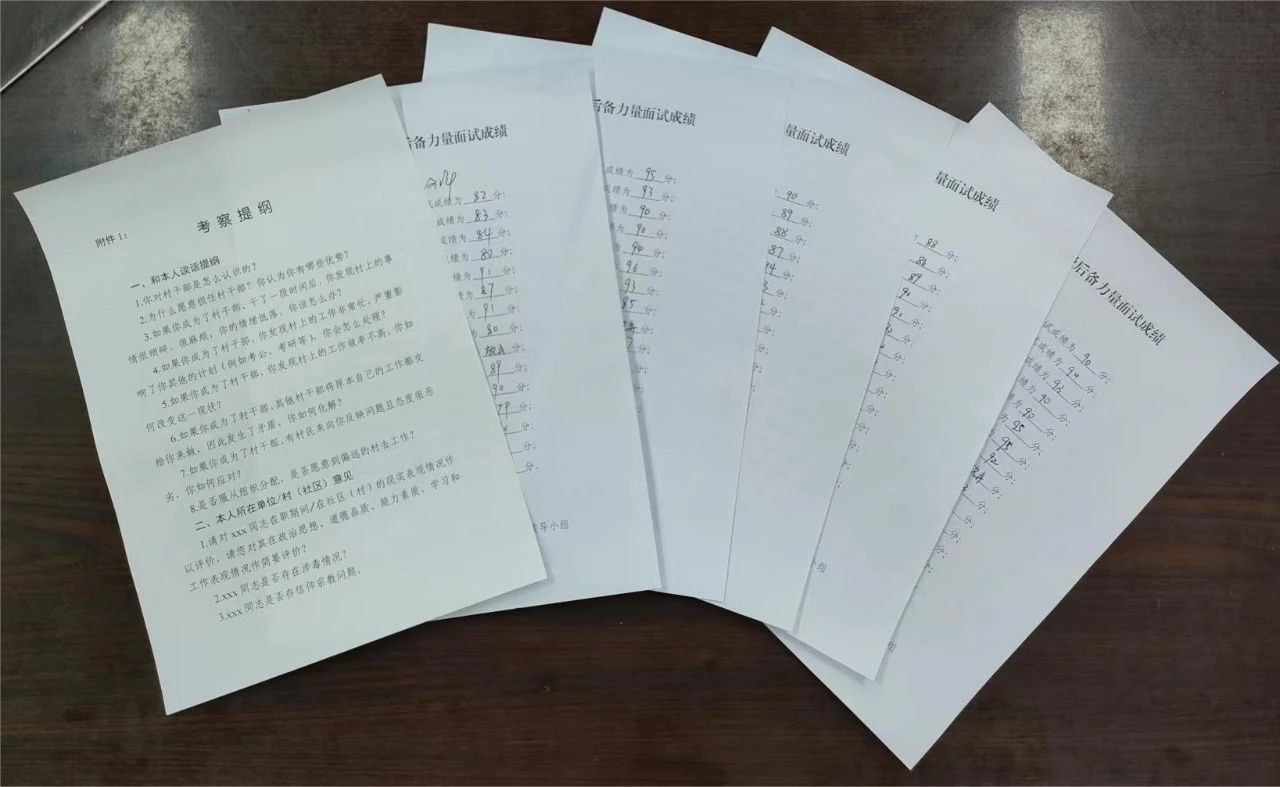 附件1:
考察提纲
一、和本人谈话提纲
1.你对村干部是怎么认识的?
2.为什么愿意担任村干部?你认为你有哪些优势?
3.如果你成为了村干部,干了一段时间后,你发现村上的事
情很琐碎、很麻烦,你的情绪低落,你该怎么办?
4.如果你成为了村干部,你发现村上的工作非常忙,严重影
响了你其他的计划(例如考公、考研等),你会怎么处理?
5.如果你成为了村干部,你发现村上的工作效率不高,你如
何改变这一现状?
6.如果你成为了村干部,其他村干部将原本自己的工作都交
给你来做,因此发生了矛盾,你如何化解?
7.如果你成为了村干部,有村民来向你反映问题且态度很恶
劣,你如何应对?
8.是否服从组织分配,是否愿意到偏远的村去工作?
二、本人所在单位/村(社区)意见
1.请对xxx同志在职期间/在社区(村)的现实表现情况作
以评价,请您对其在政治思想、道德品质、能力素质、学习和
工作表现情况作简要评价?
2.xxx同志是否存在涉毒情况?
3.xxx同志是否存信仰宗教问题。
后备力量面试成绩
试成绩为 82 分;
成绩为 83 分;
成绩为 84 分;
绩为 80 分;
绩为 91 分;
绩为 87 分;
为 91 分;
为 80 分;
分;
89 分;
90 分;
79 分;
分;
分;
分;
导小组
后备力量面试成绩
成绩为 95 分;
成绩为 93 分;
绩为 90 分;
为 90 分;
94 分;
96 分;
93 分;
85 分;
分;
分;
量面试成绩
90 分;
89 分;
88 分;
87 分;
分;
分;
分;
分;
小组
量面试成绩
88 分;
88 分;
89 分;
90 分;
分;
分;
分;
组
后备力量面试成绩
试成绩为 90 分;
成绩为 94 分;
绩为 93 分;
绩为 90 分;
为 92 分;
为 95 分;
95 分;
92 分;
分;
分;
分;
分;
分;